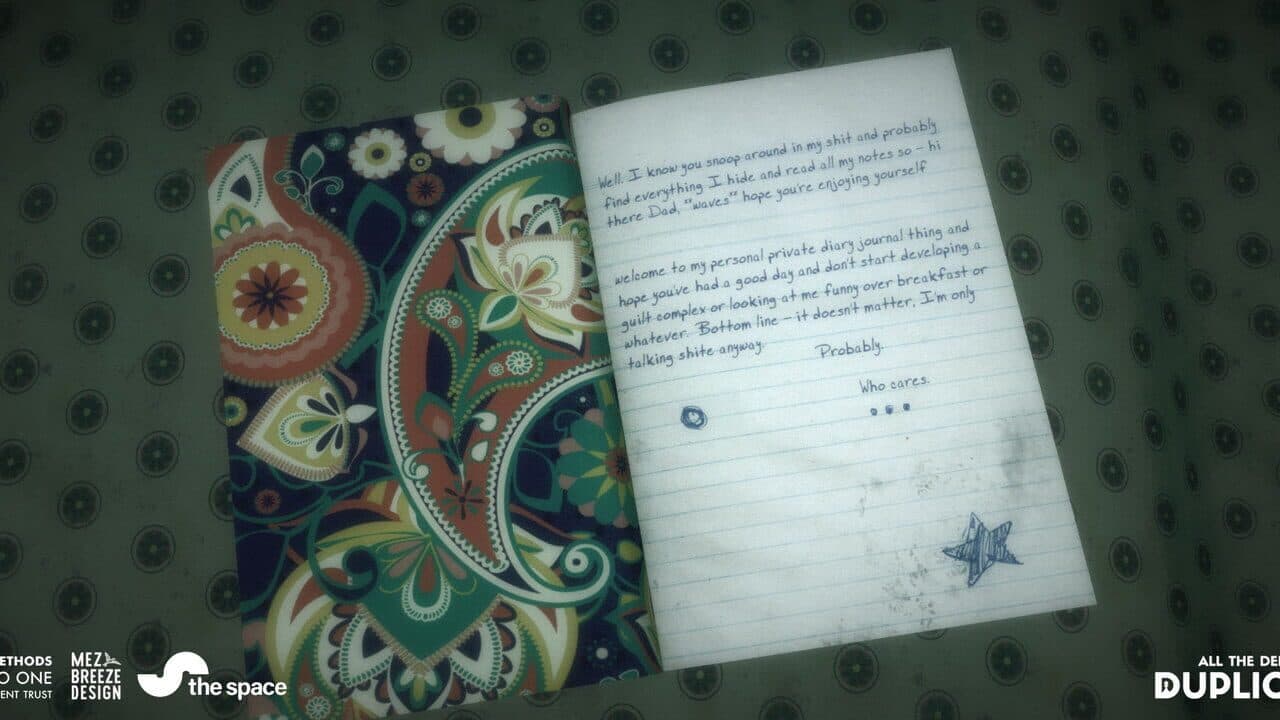 Well. I know you snoop around in my shit and probably
find everything I hide and read all my notes so – hi
there Dad, "waves" hope you're enjoying yourself
welcome to my personal private diary journal thing and
hope you've had a good day and don't start developing a
guilt complex or looking at me funny over breakfast or
whatever. Bottom line – it doesn't matter, I'm only
talking shite anyway. Probably.
Who cares.
...
ETHODS
O ONE
ENT TRUST
MEZ
BREEZE
DESIGN
the space
ALL THE DE
DUPLIC